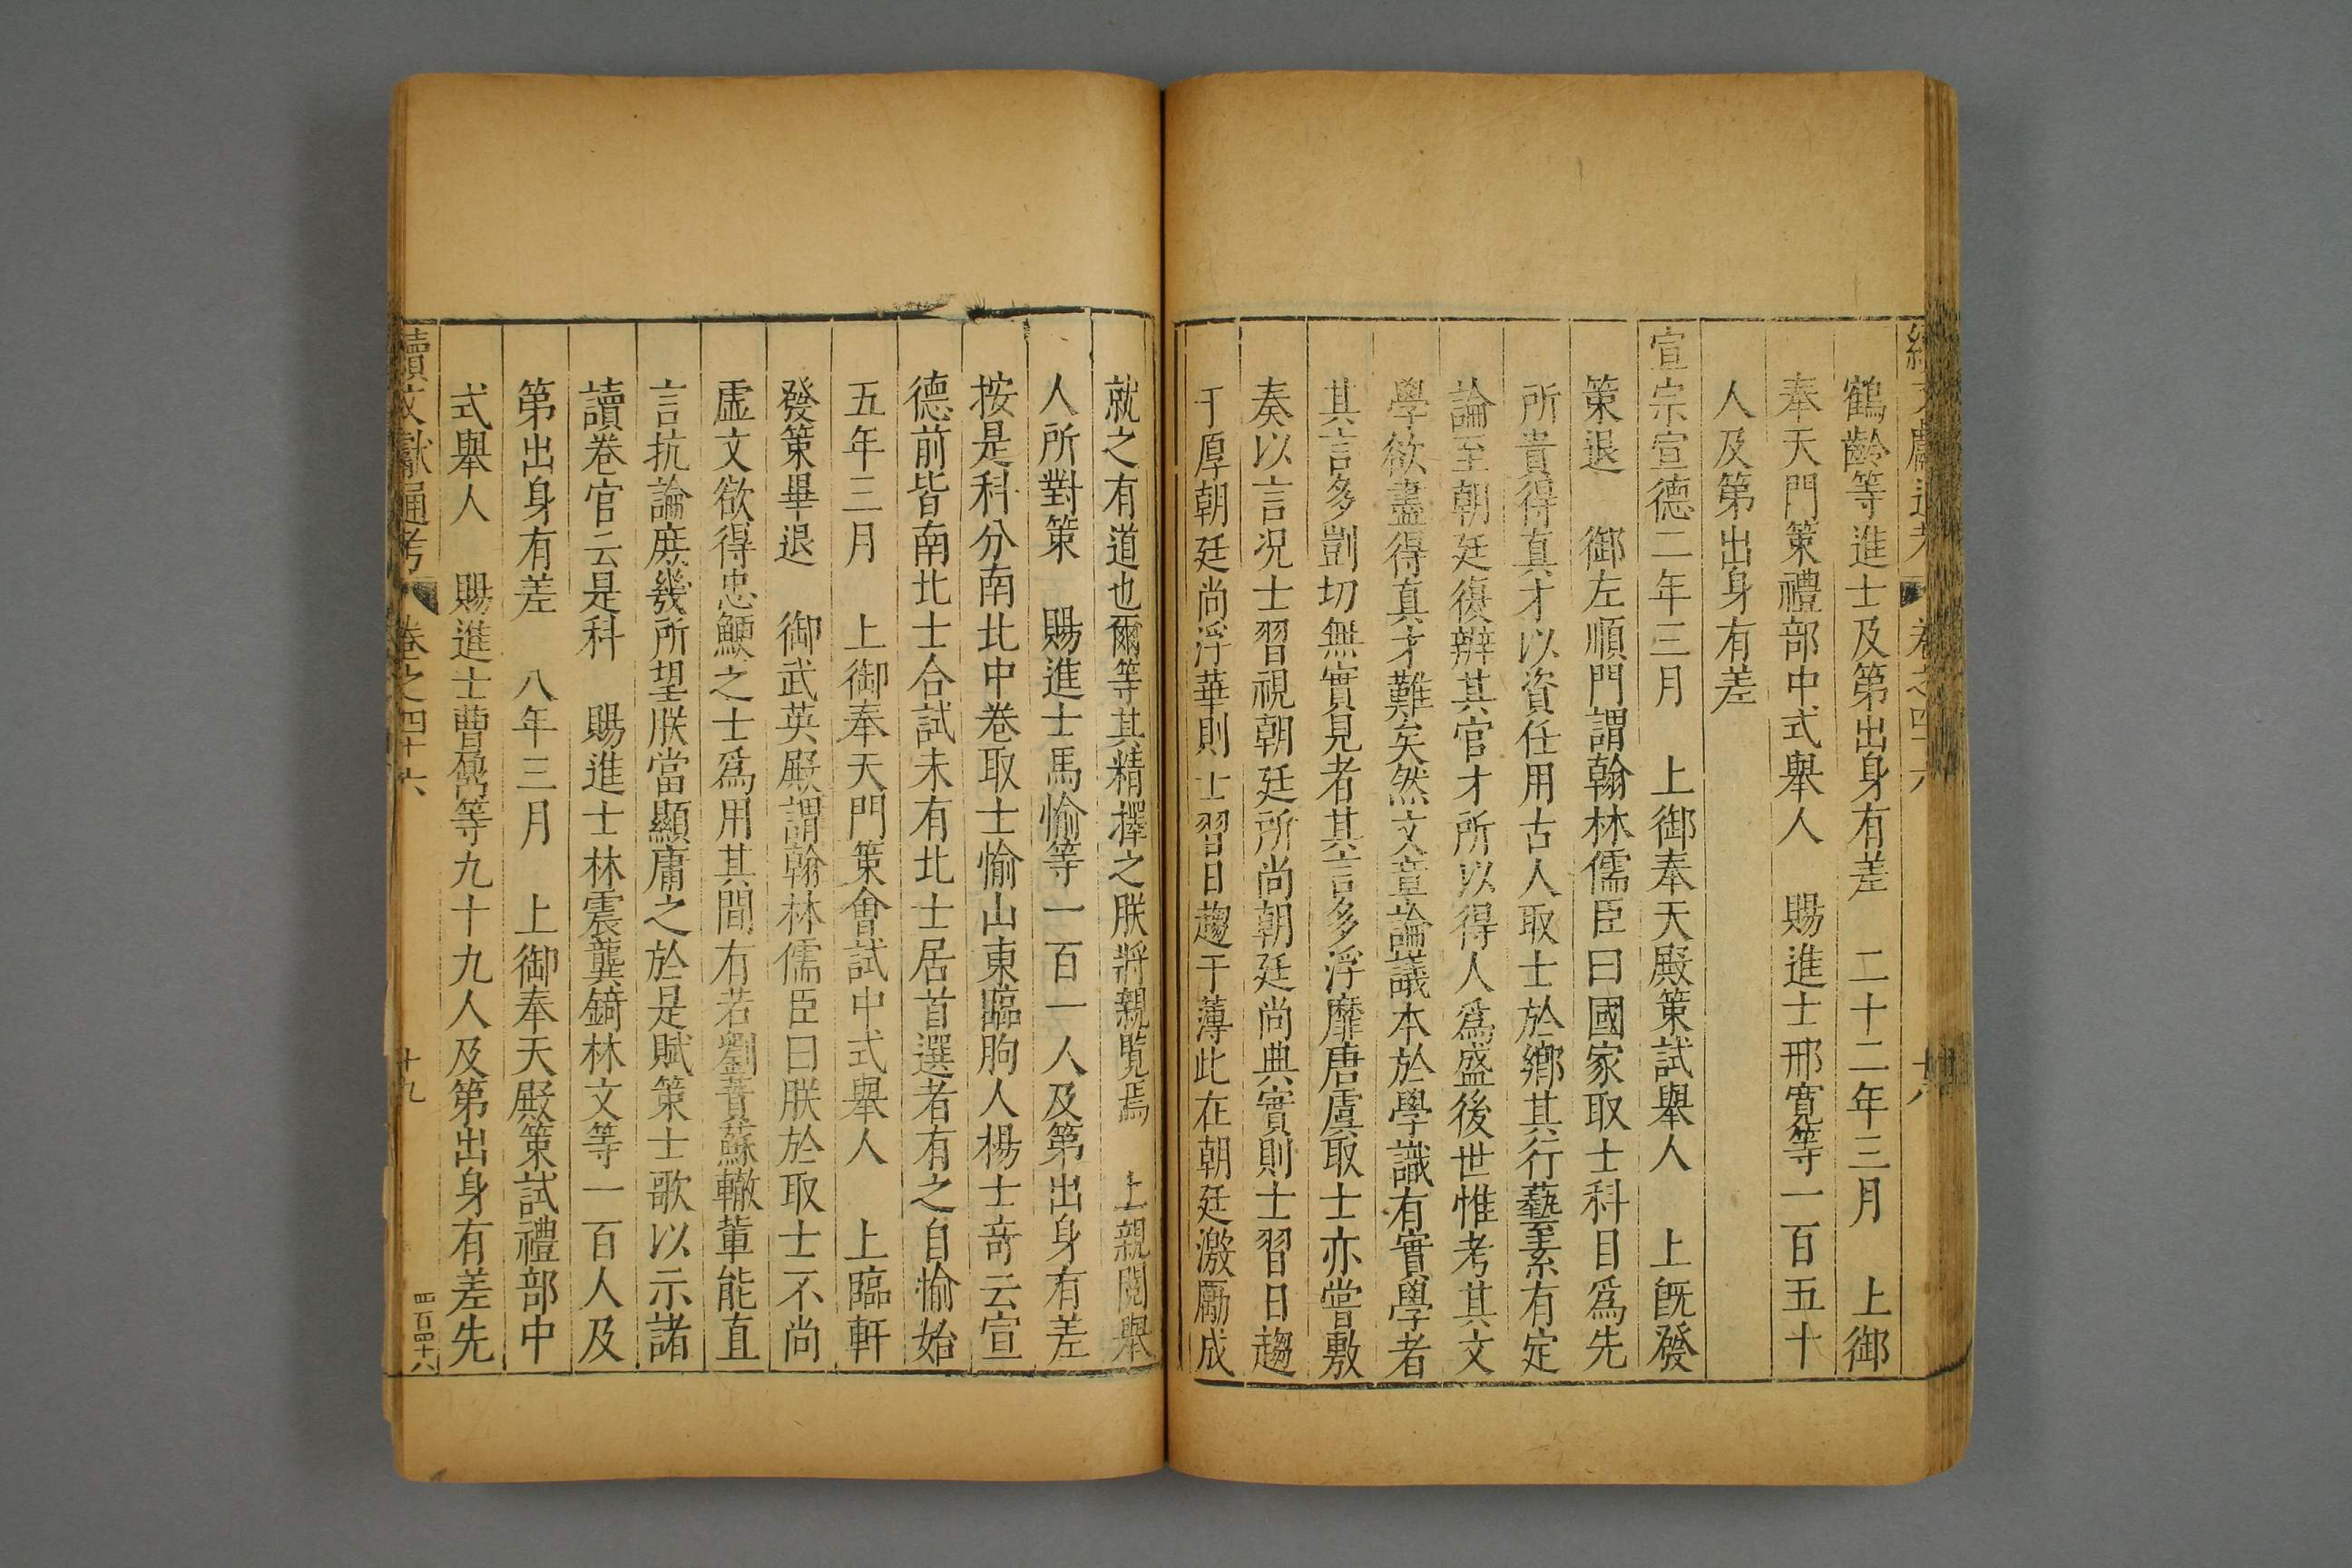 續文獻通考 卷之四十六 十八
鶴齡等進士及第出身有差 二十二年三月 上御
奉天門策禮部中式舉人 賜進士邢寬等一百五十
人及第出身有差
宣宗宣德二年三月 上御奉天殿策試舉人 上旣發
策退 御左順門謂翰林儒臣曰國家取士科目爲先
所貴得真才以資任用古人取士於鄉其行藝素有定
論至朝廷復辨其官才所以得人爲盛後世惟考其文
學欲盡得真才難矣然文章論議本於學識有實學者
其言多剴切無實見者其言多浮靡唐虞取士亦嘗敷
奏以言况士習視朝廷所尚朝廷尚典實則士習日趨
于厚朝廷尚浮華則士習日趨于薄此在朝廷激勵成
就之有道也爾等其精擇之朕將親覽焉 上親閲舉
人所對策 賜進士馬愉等一百一人及第出身有差
按是科分南北中卷取士愉山東臨朐人楊士奇云宣
德前皆南北士合試未有北士居首選者有之自愉始
五年三月 上御奉天門策會試中式舉人 上臨軒
發策畢退 御武英殿謂翰林儒臣曰朕於取士不尚
虛文欲得忠鯁之士爲用其間有若劉蕡蘇轍輩能直
言抗論庶幾所望朕當顯庸之於是賦策士歌以示諸
讀卷官云是科 賜進士林震龔錡林文等一百人及
第出身有差 八年三月 上御奉天殿策試禮部中
式舉人 賜進士曹鼐等九十九人及第出身有差先
續文獻通考 卷之四十六 十九 四百四十六